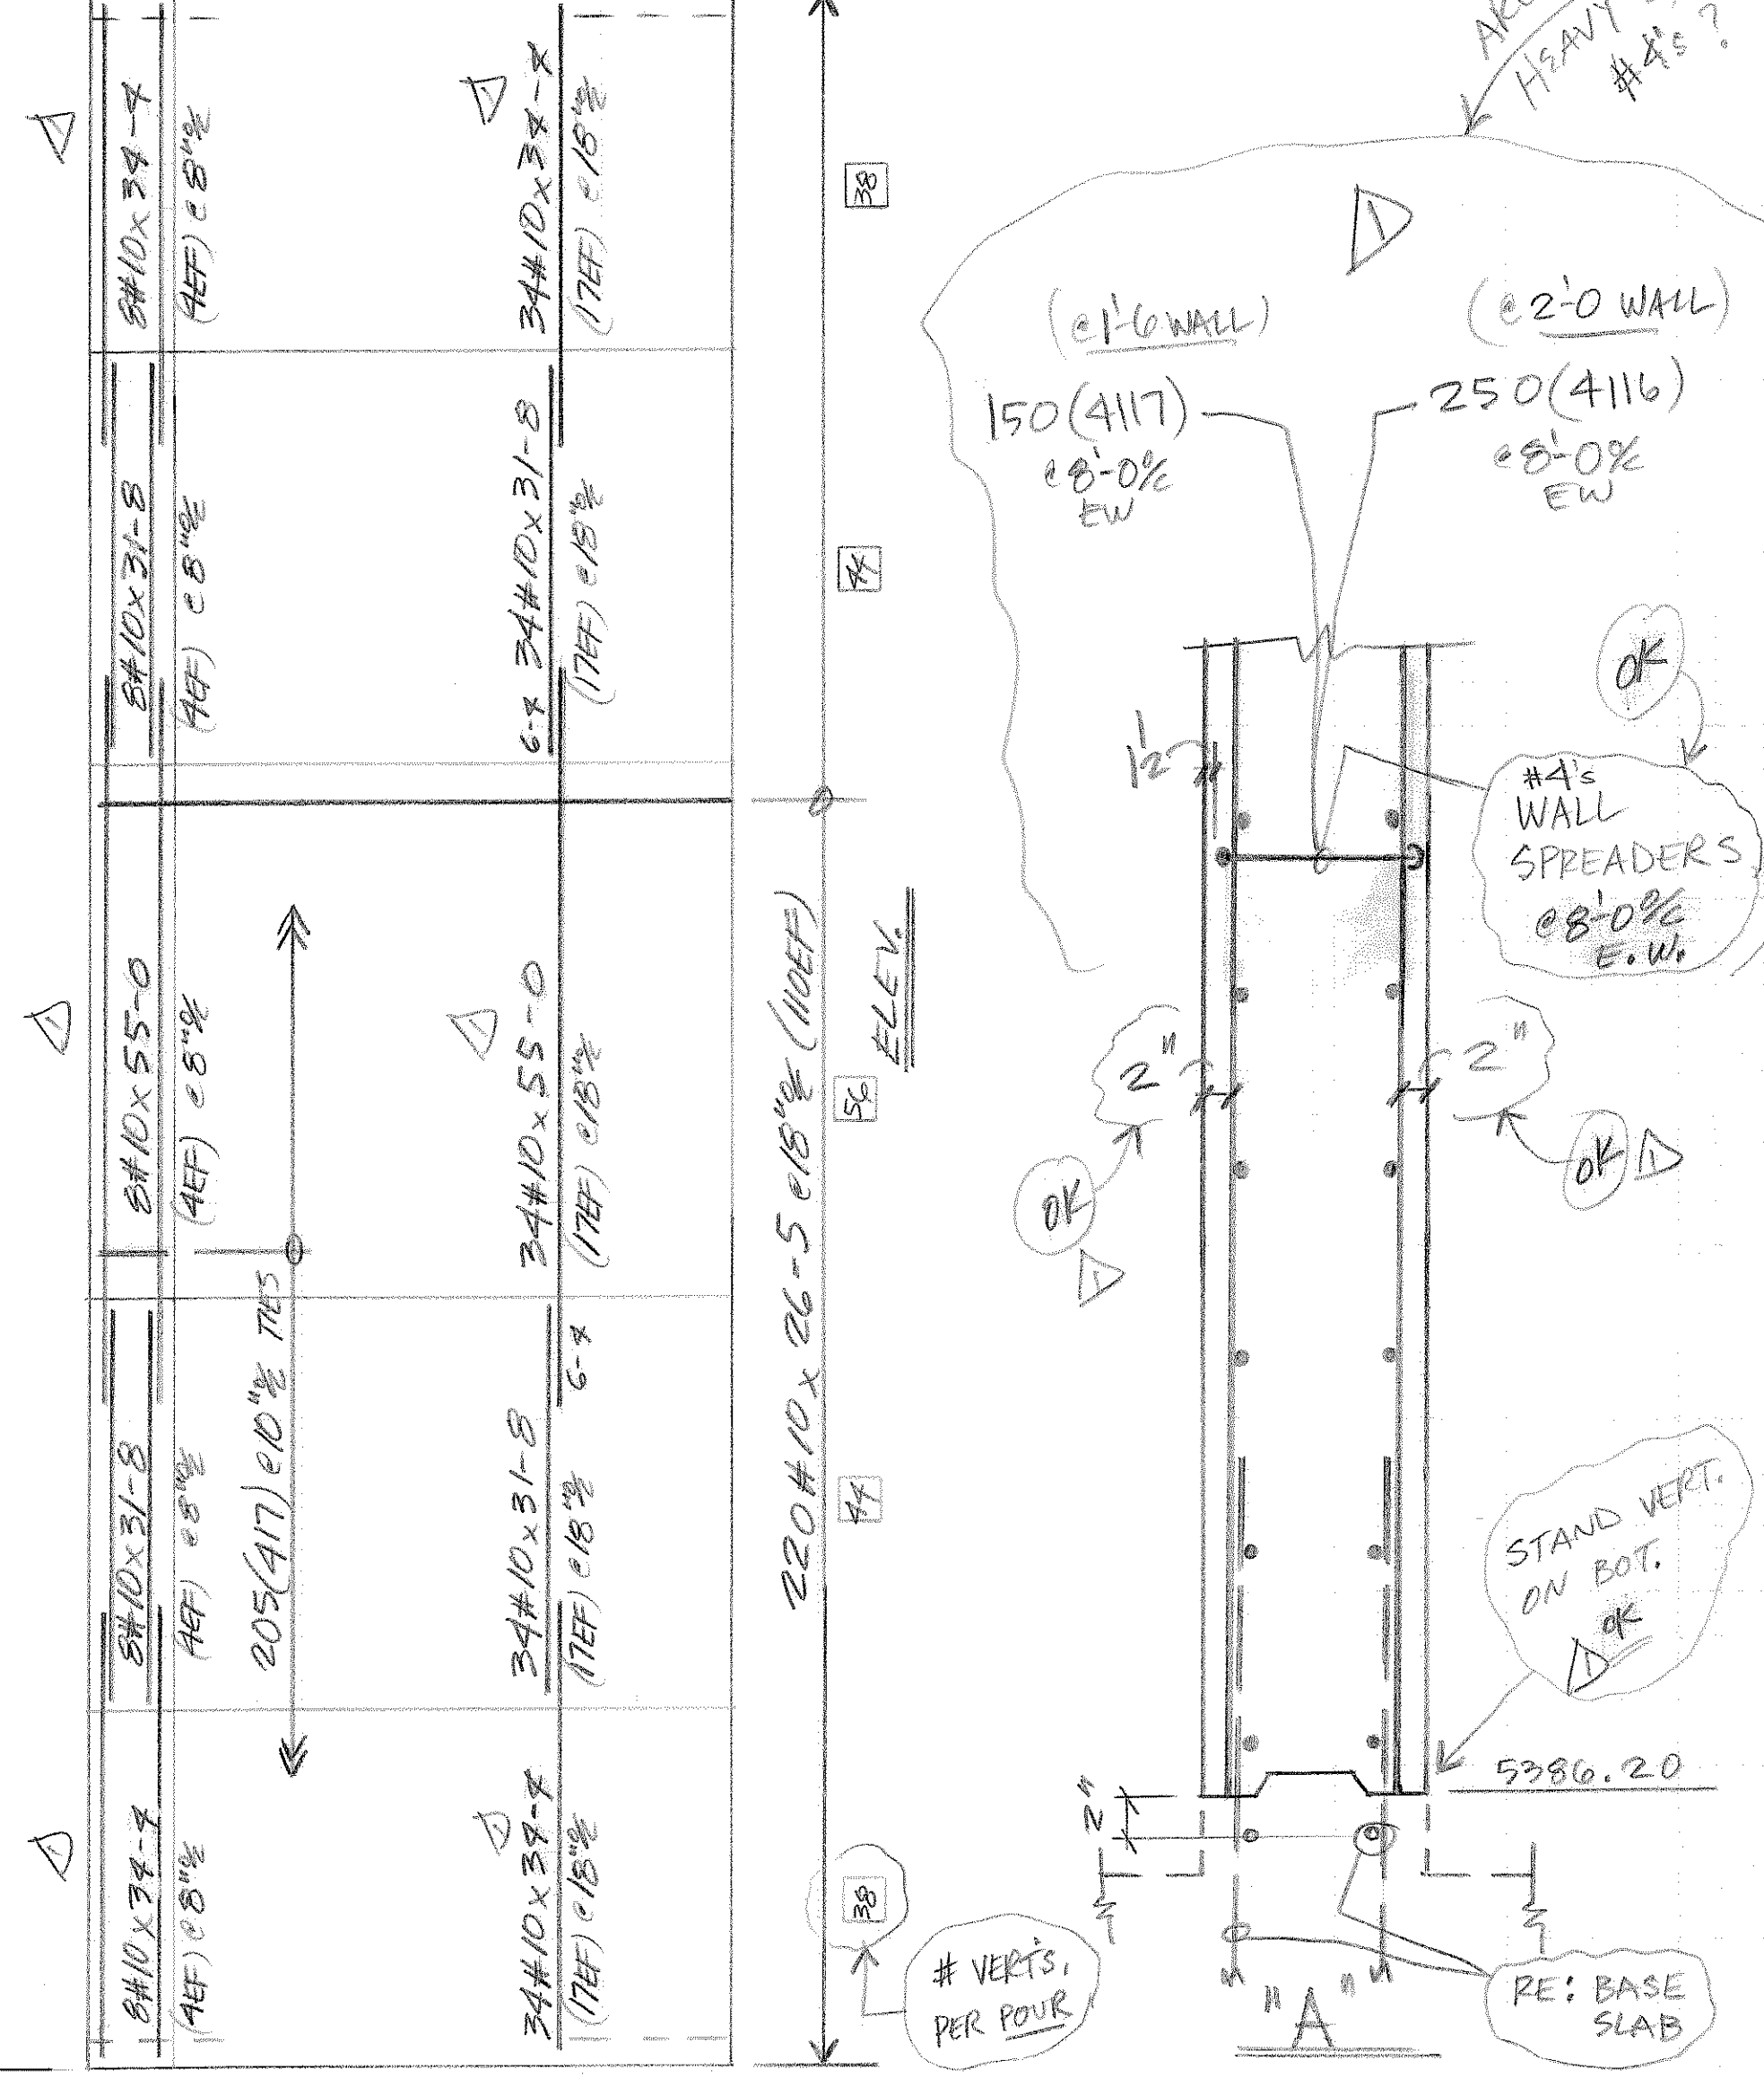 8#10x34-4
(4EF) @8"o/c
8#10x31-8
(4EF) @8"o/c
8#10x55-0
(4EF) @8"o/c
8#10x31-8
(4EF) @8"o/c
8#10x34-4
(4EF) @8"o/c
205(417) @10"o/c TIES
1
34#10x34-4
(17EF) @18"o/c
6-4 34#10x31-8
(17EF) @18"o/c
1
34#10x55-0
(17EF) @18"o/c
34#10x31-8
6-4
(17EF) @18"o/c
34#10x34-4
(17EF) @18"o/c
220#10x26-5 @18"o/c (110EF)
38
44
56
44
38
ELEV.
# VERT'S.
PER POUR
HEAVY
#4's ?
1
(@1'-6 WALL)
150(4117)
@8'-0 o/c
EW
(@2'-0 WALL)
250(4116)
@8'-0 o/c
EW
1 1/2
OK
#4's
WALL
SPREADERS
@8'-0 o/c
E.W.
2"
OK
1
2"
OK 1
STAND VERT.
ON BOT.
1 OK
5386.20
2"
RE: BASE
SLAB
"A"